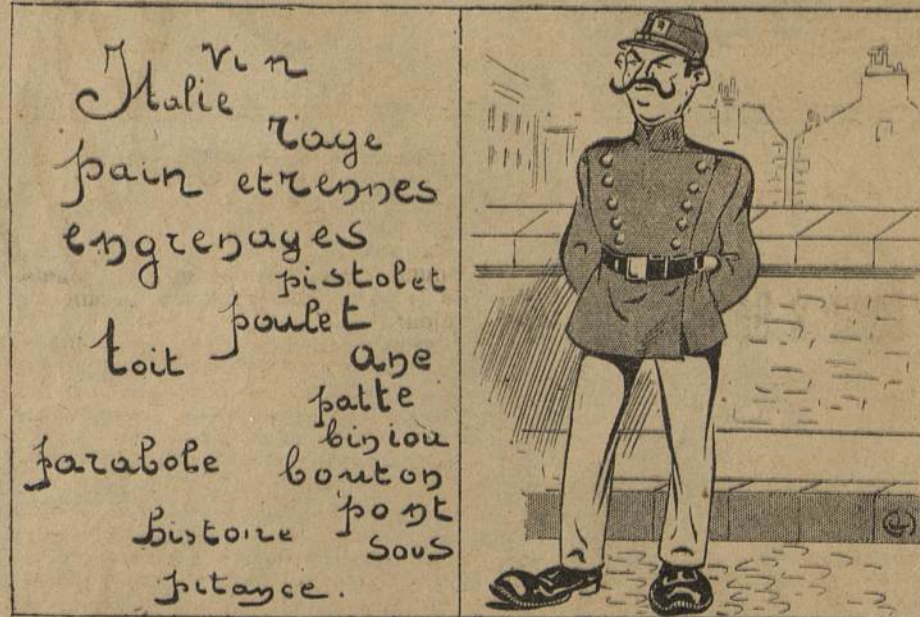 vin
Italie
rage
pain etrennes
engrenages
pistolet
poulet
toit ane
patte
biniou
parabole bouton
pont
histoire
sous
pitance.